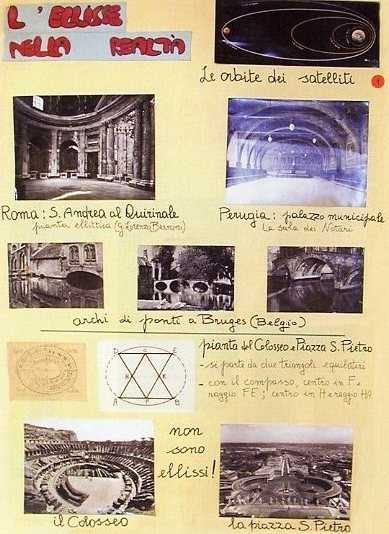 L'ELLISSE
NELLA REALTÀ
Le orbite dei satelliti
1
Roma: S. Andrea al Quirinale
pianta ellittica (G. Lorenzo Bernini)
Perugia: palazzo municipale
La sala dei Notari
archi di ponti a Bruges (Belgio)
pianta del Colosseo e Piazza S. Pietro
- si parte da due triangoli equilateri
- con il compasso, centro in F e
raggio FE; centro in H e raggio HA
non
sono
ellissi!
il Colosseo
la piazza S. Pietro